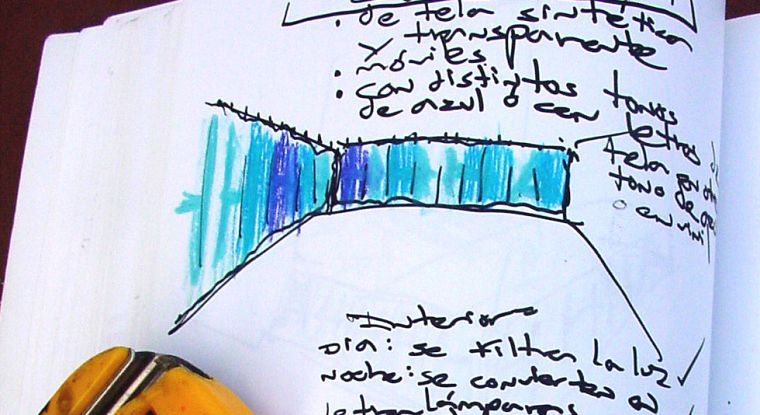 de tela sintética
y transparente
• móviles
• con distintos tonos
de azul o con
letras
tela
tono de
o
Interior
Día: se filtra la luz ✓
Noche: se convierten en
lámparas